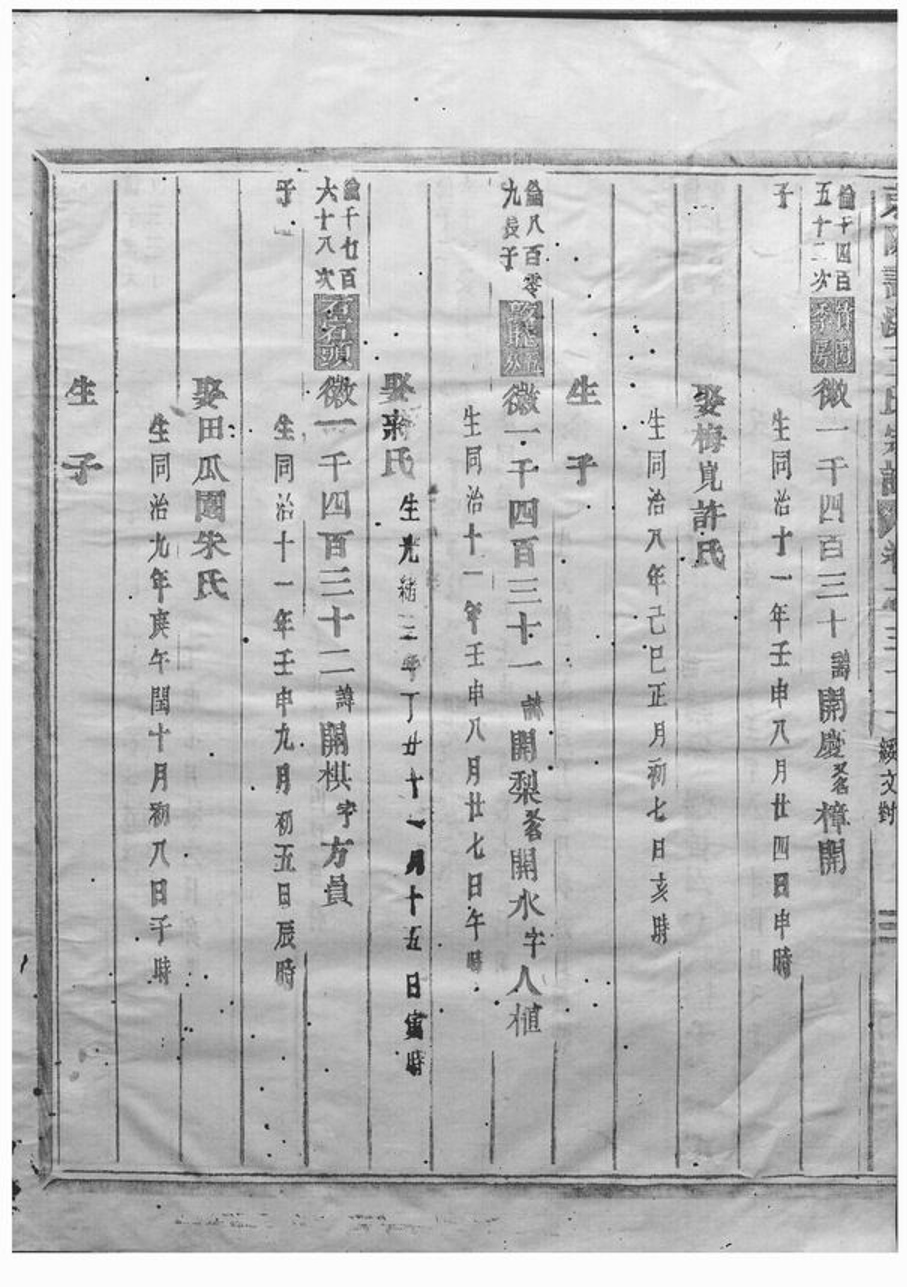 綏文對
倫千四百五十二次子
徽一千四百三十 諱開慶又名樟開
生同治十一年壬申八月廿四日申時
娶梅峴許氏
生同治八年己巳正月初七日亥時
生子
倫八百零九長子
徽一千四百三十一 諱開梨又名開水字人植
生同治十一年壬申八月廿七日午時
娶蔣氏 生光緒三年丁丑十一月十五日寅時
倫千七百六十八次子
宅頭
徽一千四百三十二 諱開棋字方員
生同治十一年壬申九月初五日辰時
娶田瓜園朱氏
生同治九年庚午閏十月初八日子時
生子